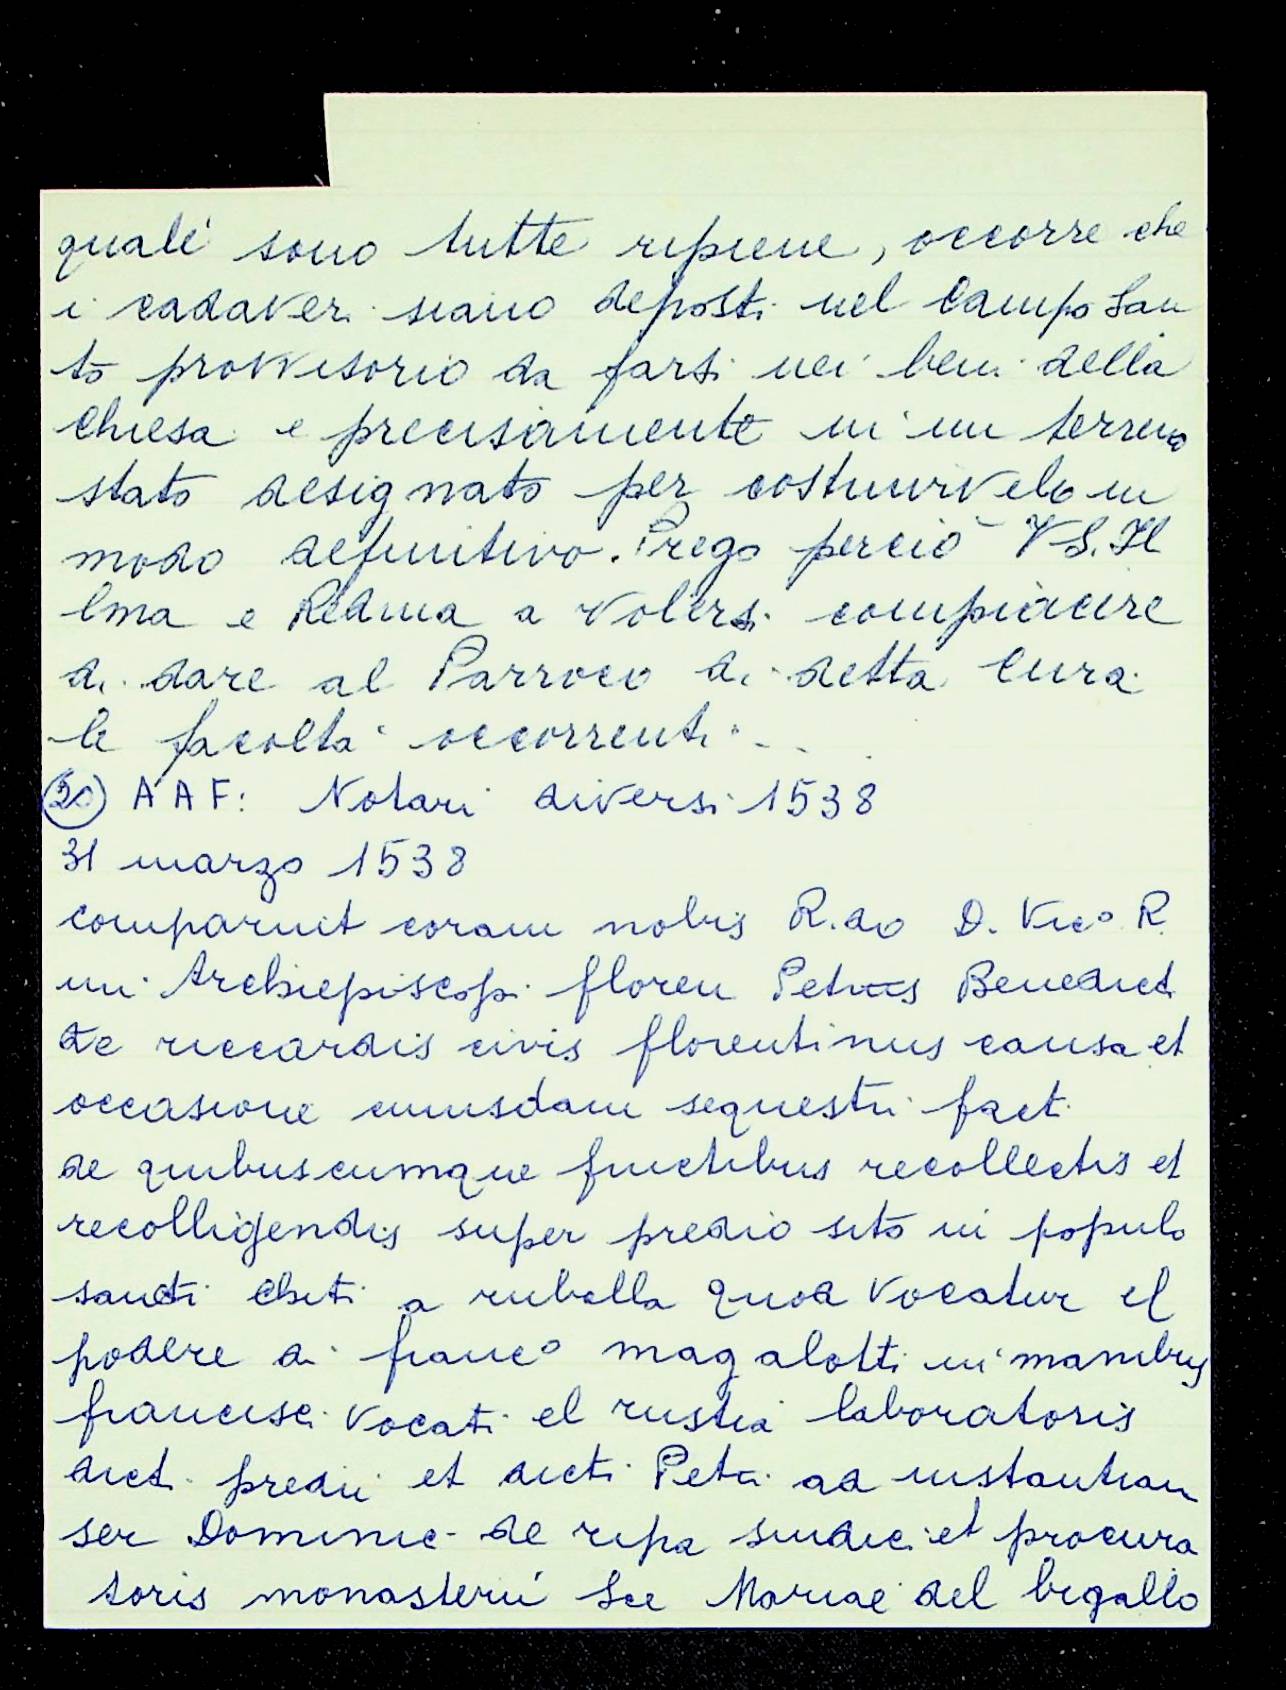 quali sono tutte ripiene, occorre che
i cadaveri siano deposti nel Campo San
to provvisorio da farsi nei beni della
Chiesa e precisamente in un terreno
stato designato per costruirvelo in
modo definitivo. Prego perciò V S. Il
lma e Redma a volersi compiacere
di dare al Parroco di detta Cura
le facoltà occorrenti...
20 A A F: Notari diversi 1538
31 marzo 1538
comparuit coram nobis R.do D. Vico R.
mi Archiepiscopi floren Petrus Benedicti
de riccardis civis florentinus causa et
occasione cuiusdam sequestri facti
de quibuscumque fructibus recollectis et
recolligendis super predio sito in populo
sancti Chiti a rubella quod vocatur el
podere di franco magalotti in manibus
francisci vocati el rustia laboratoris
dicti predii et dicti Petri ad instantiam
ser Dominic de ripa sindici et procura
toris monasterii Sce Mariae del bigallo